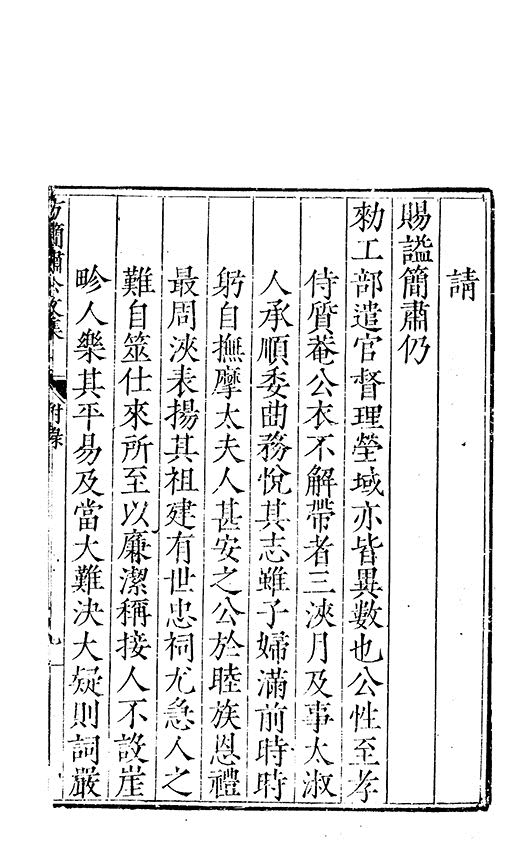 請
賜謚簡肅仍
勑工部遣官督理塋域亦皆異數也公性至孝
侍質菴公衣不解帶者三浹月及事太淑
人承順委曲務悅其志雖子婦滿前時時
躬自撫摩太夫人甚安之公於睦族恩禮
最周浹表揚其祖建有世忠祠尤急人之
難自筮仕來所至以廉潔稱接人不設崖
畛人樂其平易及當大難決大疑則詞嚴
方簡肅公文集
附錄
九